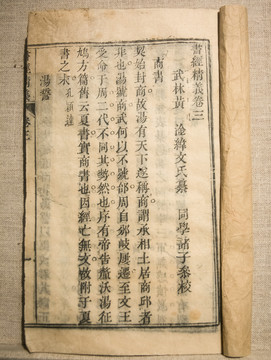 書經精義卷三
武林黃淦緯文氏纂 同學諸子參校
商書
契始封商故湯有天下遂稱商謂承相土居商邱者
非也湯號商武何以不號邰周自邰岐屢遷至文王
受命于周二代不同其勢然也序有帝告釐沃湯征
鳩方篇舊云夏書實商書也因經亡無文故附于夏
書之末孔穎達
湯誓